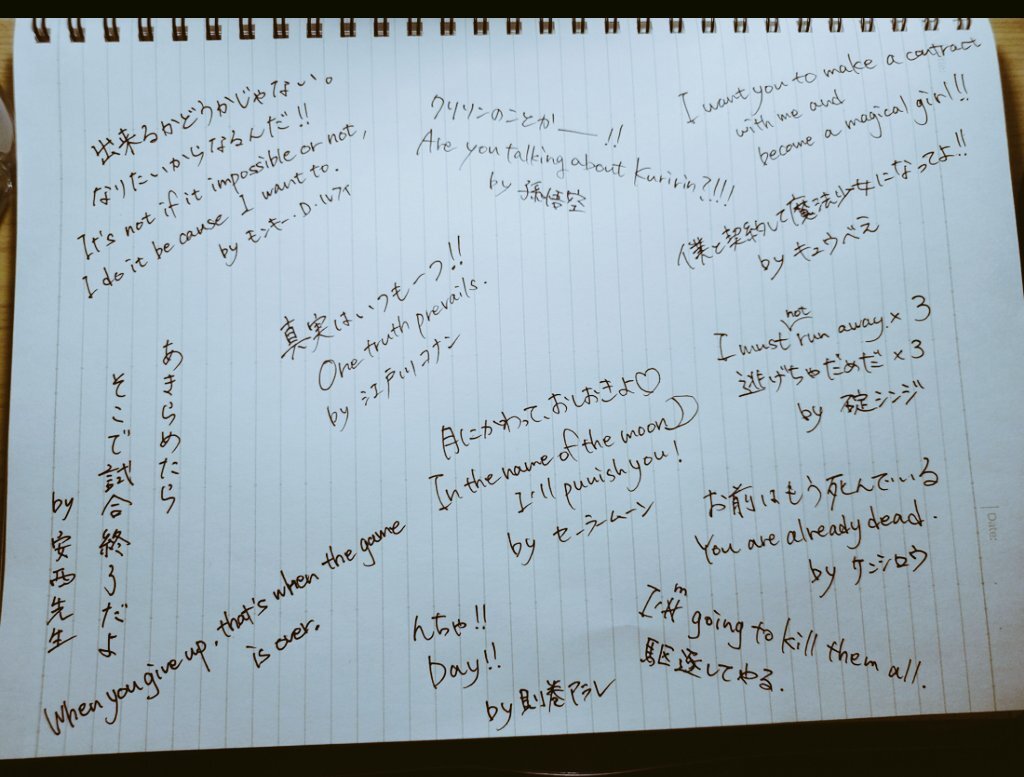 出来るかどうかじゃない。
なりたいからなるんだ!!
It's not if it impossible or not,
I do it be cause I want to.
by モンキー・D・ルフィ
クリリンのことかーー!!
Are you talking about Kuririn?!!!
by 孫悟空
I want you to make a contract
with me and
become a magical girl!!
僕と契約して魔法少女になってよ!!
by キュウべえ
真実はいつも一つ!!
One truth prevails.
by 江戸川コナン
I must not run away.×3
逃げちゃだめだ×3
by 碇シンジ
あきらめたら
そこで試合終了だよ
by 安西先生
When you give up, that's when the game
is over.
月にかわって、おしおきよ♡
In the name of the moon
I'll punish you!
by セーラームーン
お前はもう死んでいる
You are already dead.
by ケンシロウ
んちゃ!!
Day!!
by 則巻アラレ
I'm going to kill them all.
駆逐してやる.
Date: